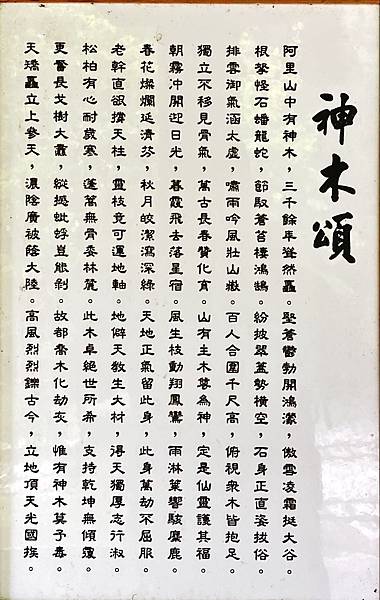 神木頌
阿里山中有神木，三千餘年聳然矗。堅蒼鬱勃開鴻濛，傲雪凌霜挺大谷。
根拏怪石蟠龍蛇，節馭蒼苔棲鴻鵠。紛披翠蓋勢橫空，石身正直姿拔俗。
排雲御氣涵太虛，嘯雨吟風壯山嶽。百人合圍千尺高，俯視衆木皆抱足。
獨立不移見骨氣，萬古長春贊化育。山有主木尊為神，定是仙靈護其福。
朝霧冲開迎日光，暮霞飛去落星宿。風生枝動翔鳳鸞，雨淋葉響駭麋鹿。
春花燦爛延清芬，秋月皎潔瀉深綠。天地正氣留此身，此身萬劫不屈服。
老幹直欲撐天柱，靈枝竟可運地軸。地僻天教生大材，得天獨厚志行淑。
松柏有心耐歲寒，蓬萬無骨委林麓。此木卓絕世所希，支持乾坤無傾覆。
更番長戈樹大纛，縱撼蚍蜉豈能剝。故都喬木化劫灰，惟有神木莫予毒。
天矯矗立上參天，濃陰廣被蔭大陸。高風烈烈鑠古今，立地頂天光國族。